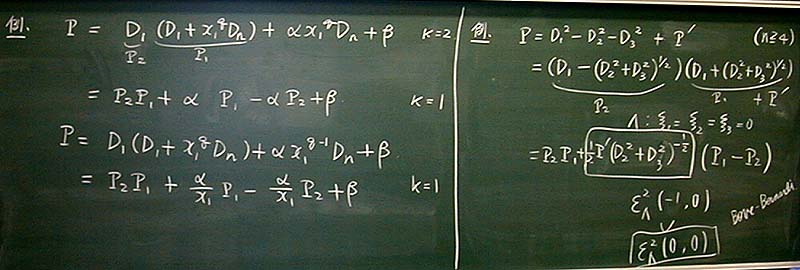 例. P = D₁ (D₁ + x₁^q Dₙ) + αx₁^q Dₙ + β K=2
P₂ P₁
= P₂P₁ + α P₁ − αP₂ + β K=1
P = D₁ (D₁ + x₁^q Dₙ) + αx₁^{q-1} Dₙ + β
= P₂P₁ + α/x₁ P₁ − α/x₁ P₂ + β K=1
例. P = D₁² − D₂² − D₃² + P′ (n≥4)
= (D₁ − (D₂² + D₃²)^{1/2}) (D₁ + (D₂² + D₃²)^{1/2})
P₂ P₁ + P′
Λ : ξ₁ = ξ₂ = ξ₃ = 0
= P₂P₁ + ½P′(D₂² + D₃²)^{-½} (P₁ − P₂)
ε²_Λ (−1, 0)
ε²_Λ (0, 0)
Bove-Bernardi